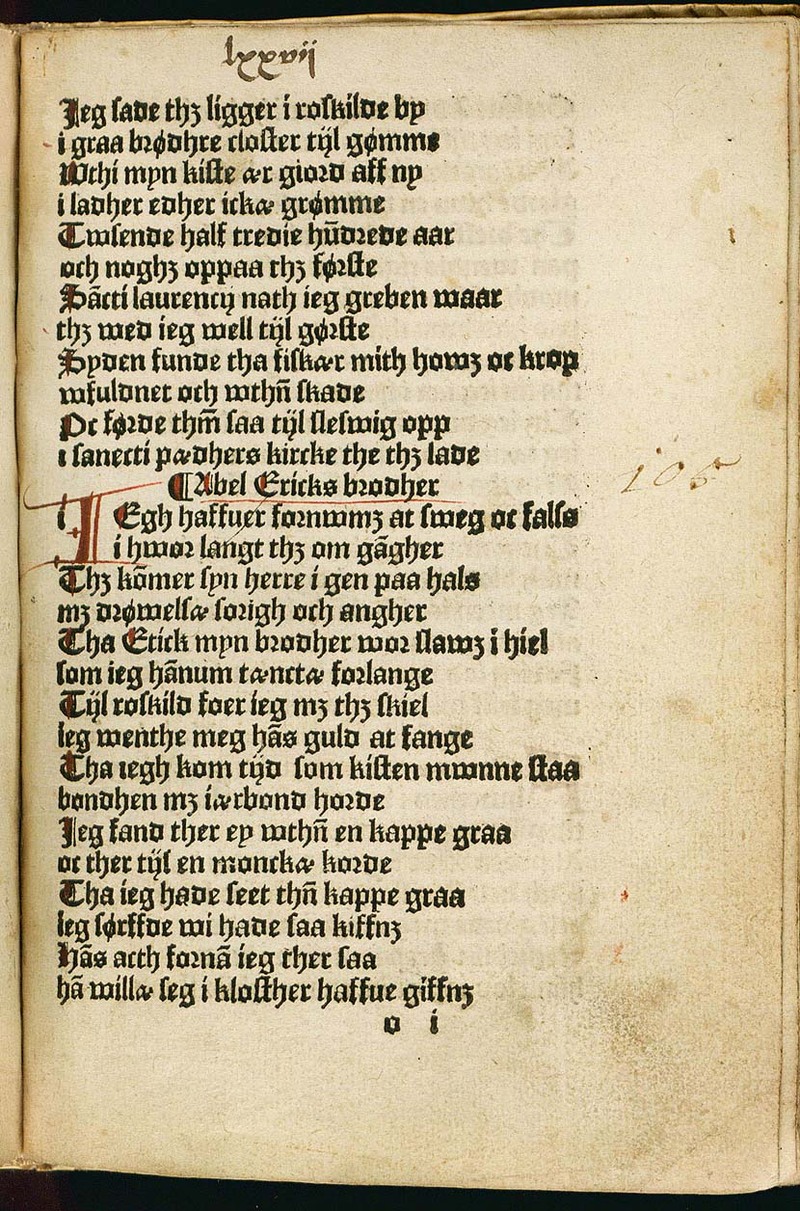 lxxvij
Jeg sade thꝫ ligger i roskilde by
i graa brødhre closter tijl gømme
Wthi myn kiste ær giord aff ny
i ladher edher ickæ grømme
Twsende half tredie hūdrede aar
och noghꝫ oppaa thꝫ første
Sācti laurencij nath ieg greben waar
thꝫ wed ieg well tijl gørste
Syden funde tha fiskær mith howꝫ oc krop
wfuldnet och wthn̄ skade
Ocførde thm̄ saa tijl sleswig opp
i sanecti pædhers kircke the thꝫ lade
¶Abel Ericks brodher
i JEgh haffuer fornwmꝫ at sweg oc fals
i hwor langt thꝫ om gāgher
Thꝫ kōmer syn herre i gen paa hals
mꝫ drøwelsæ sorigh och angher
Tha Erick myn brodher wor slawꝫ i hiel
som ieg hānum tænctæ forlange
Tijl roskild foer ieg mꝫ thꝫ skiel
ieg wenthe meg hās guld at fange
Tha iegh kom tijd som kisten mwnne staa
bondhen mꝫ iærbond horde
Jeg fand ther ey wthn̄ en kappe graa
oc ther tijl en monckæ korde
Tha ieg hade seet thn̄ kappe graa
ieg sørffde wi hade saa kiffnꝫ
Hās acth fornā ieg ther saa
hā willæ seg i klosther haffue giffnꝫ
o i
105